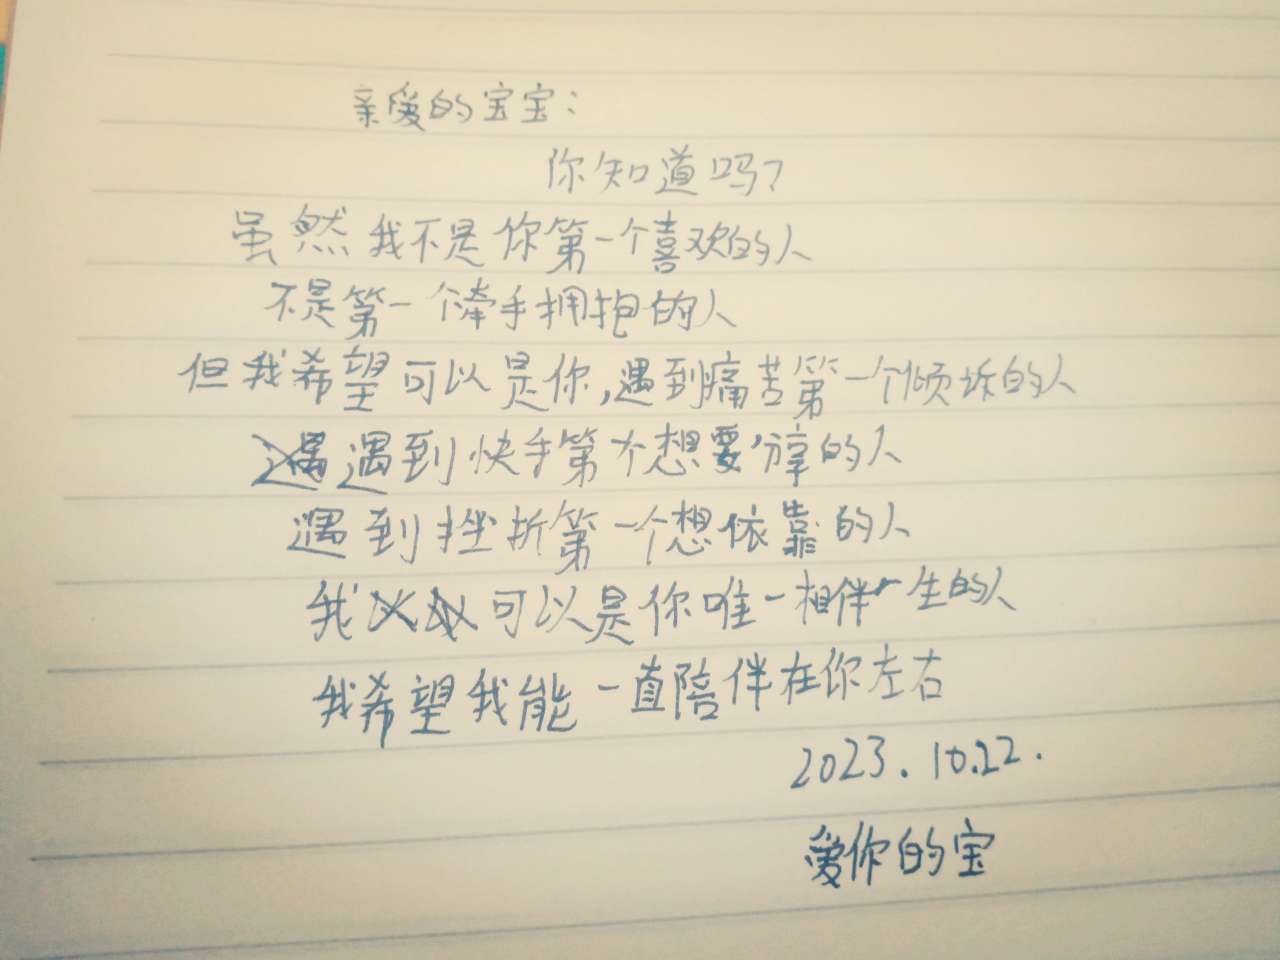 亲爱的宝宝：
你知道吗？
虽然我不是你第一个喜欢的人
不是第一个牵手拥抱的人
但我希望可以是你,遇到痛苦第一个倾诉的人
遇到快手第个想要分享的人
遇到挫折第一个想依靠的人
我可以是你唯一相伴一生的人
我希望我能一直陪伴在你左右
2023.10.22.
爱你的宝